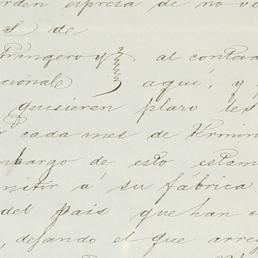 orden espresa de no v
s de
Fringero y al contad
cional aquí, y
quisieren plazo les
cada mes de termin
bargo de esto estam
mitir á su fábrica
del pais que han
, dejando el que arreg